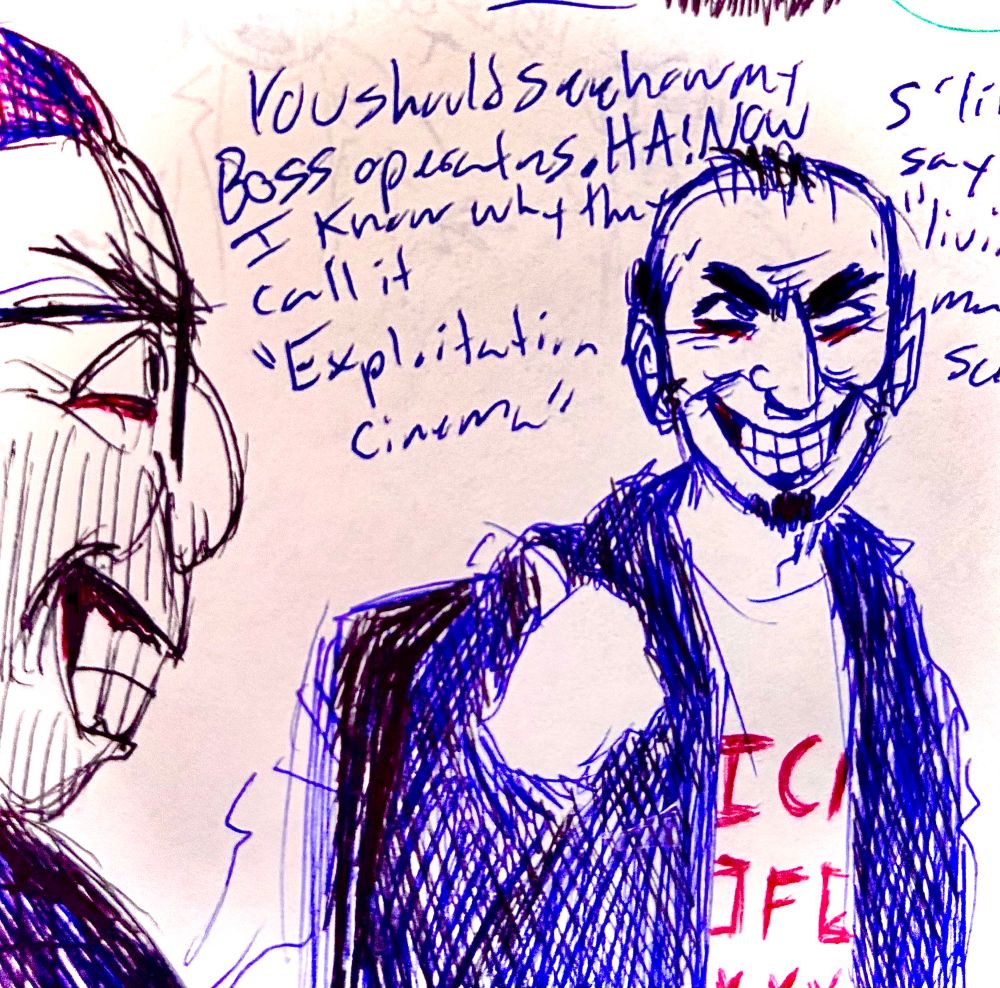 YOU should see how my
Boss operates. HA! Now
I know why they
call it
"Exploitation
cinema"
S'li
say
"livi
ma
Sc
ICK
JFE